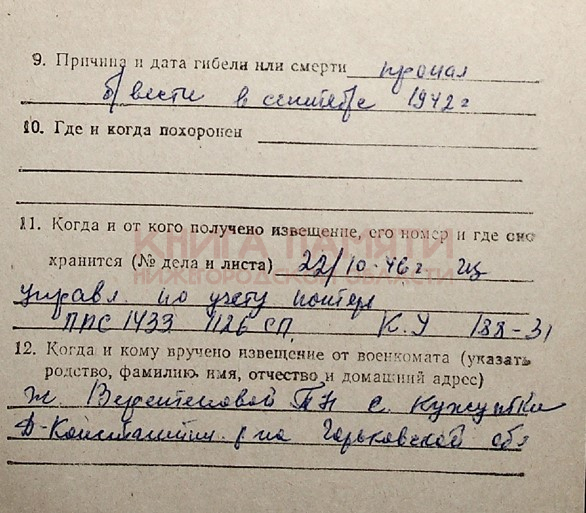 9. Причина и дата гибели или смерти пропал
б/вести в сентябре 1942 г
10. Где и когда похоронен
11. Когда и от кого получено извещение, его номер и где оно
хранится (№ дела и листа) 22/10-46 г из
управл. по учету потерь
ППС 1433 1126 СП. К.У 188-31
12. Когда и кому вручено извещение от военкомата (указать
родство, фамилию, имя, отчество и домашний адрес)
ж. Веретеновой ТН с. Кужутки
Д-Константин. р-на Горьковской обл
КНИГА ПАМЯТИ
НИЖЕГОРОДСКОЙ ОБЛАСТИ